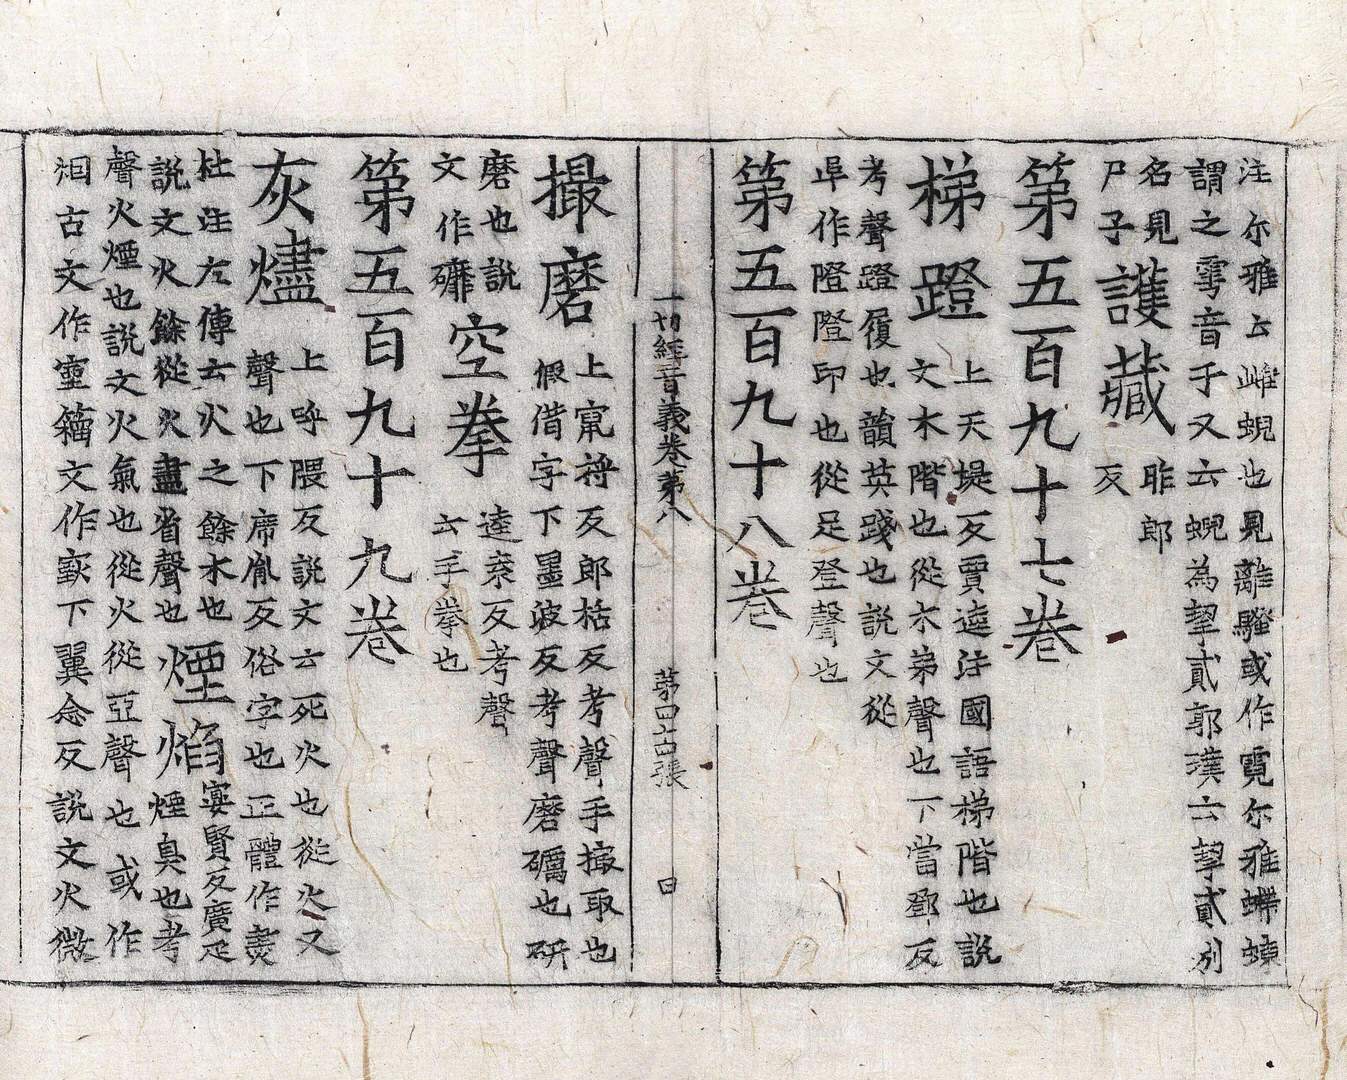 注尔雅云雌蜺也見離騷或作霓尔雅蝃蝀
謂之雩音于又云蜺為挈貳郭璞云挈貳別
名見
尸子
護藏
昨郎
反
第五百九十七卷
梯蹬
上天堤反賈逵注國語梯階也說
文木階也從木弟聲也下當鄧反
考聲蹬履也韻英踐也說文從
𨸏作隥隥印也從足登聲也
第五百九十八卷
一切經音義卷第八
第四十古張
日
撮磨
上竄捋反郎括反考聲手撮取也
假借字下墨波反考聲磨礪也研
磨也說
文作䃺
空拳
逵貟反考聲
云手拳也
第五百九十九卷
灰燼
上呼隈反說文云死火也從火又
聲也下席胤反俗字也正體作㶳
杜注左傳云火之餘木也
說文火餘從火𦘔省聲也
煙焰
宴賢反廣疋
煙臭也考
聲火煙也說文火氣也從火從亞聲也或作
洇古文作䆙籀文作𡨾下翼念反說文火微